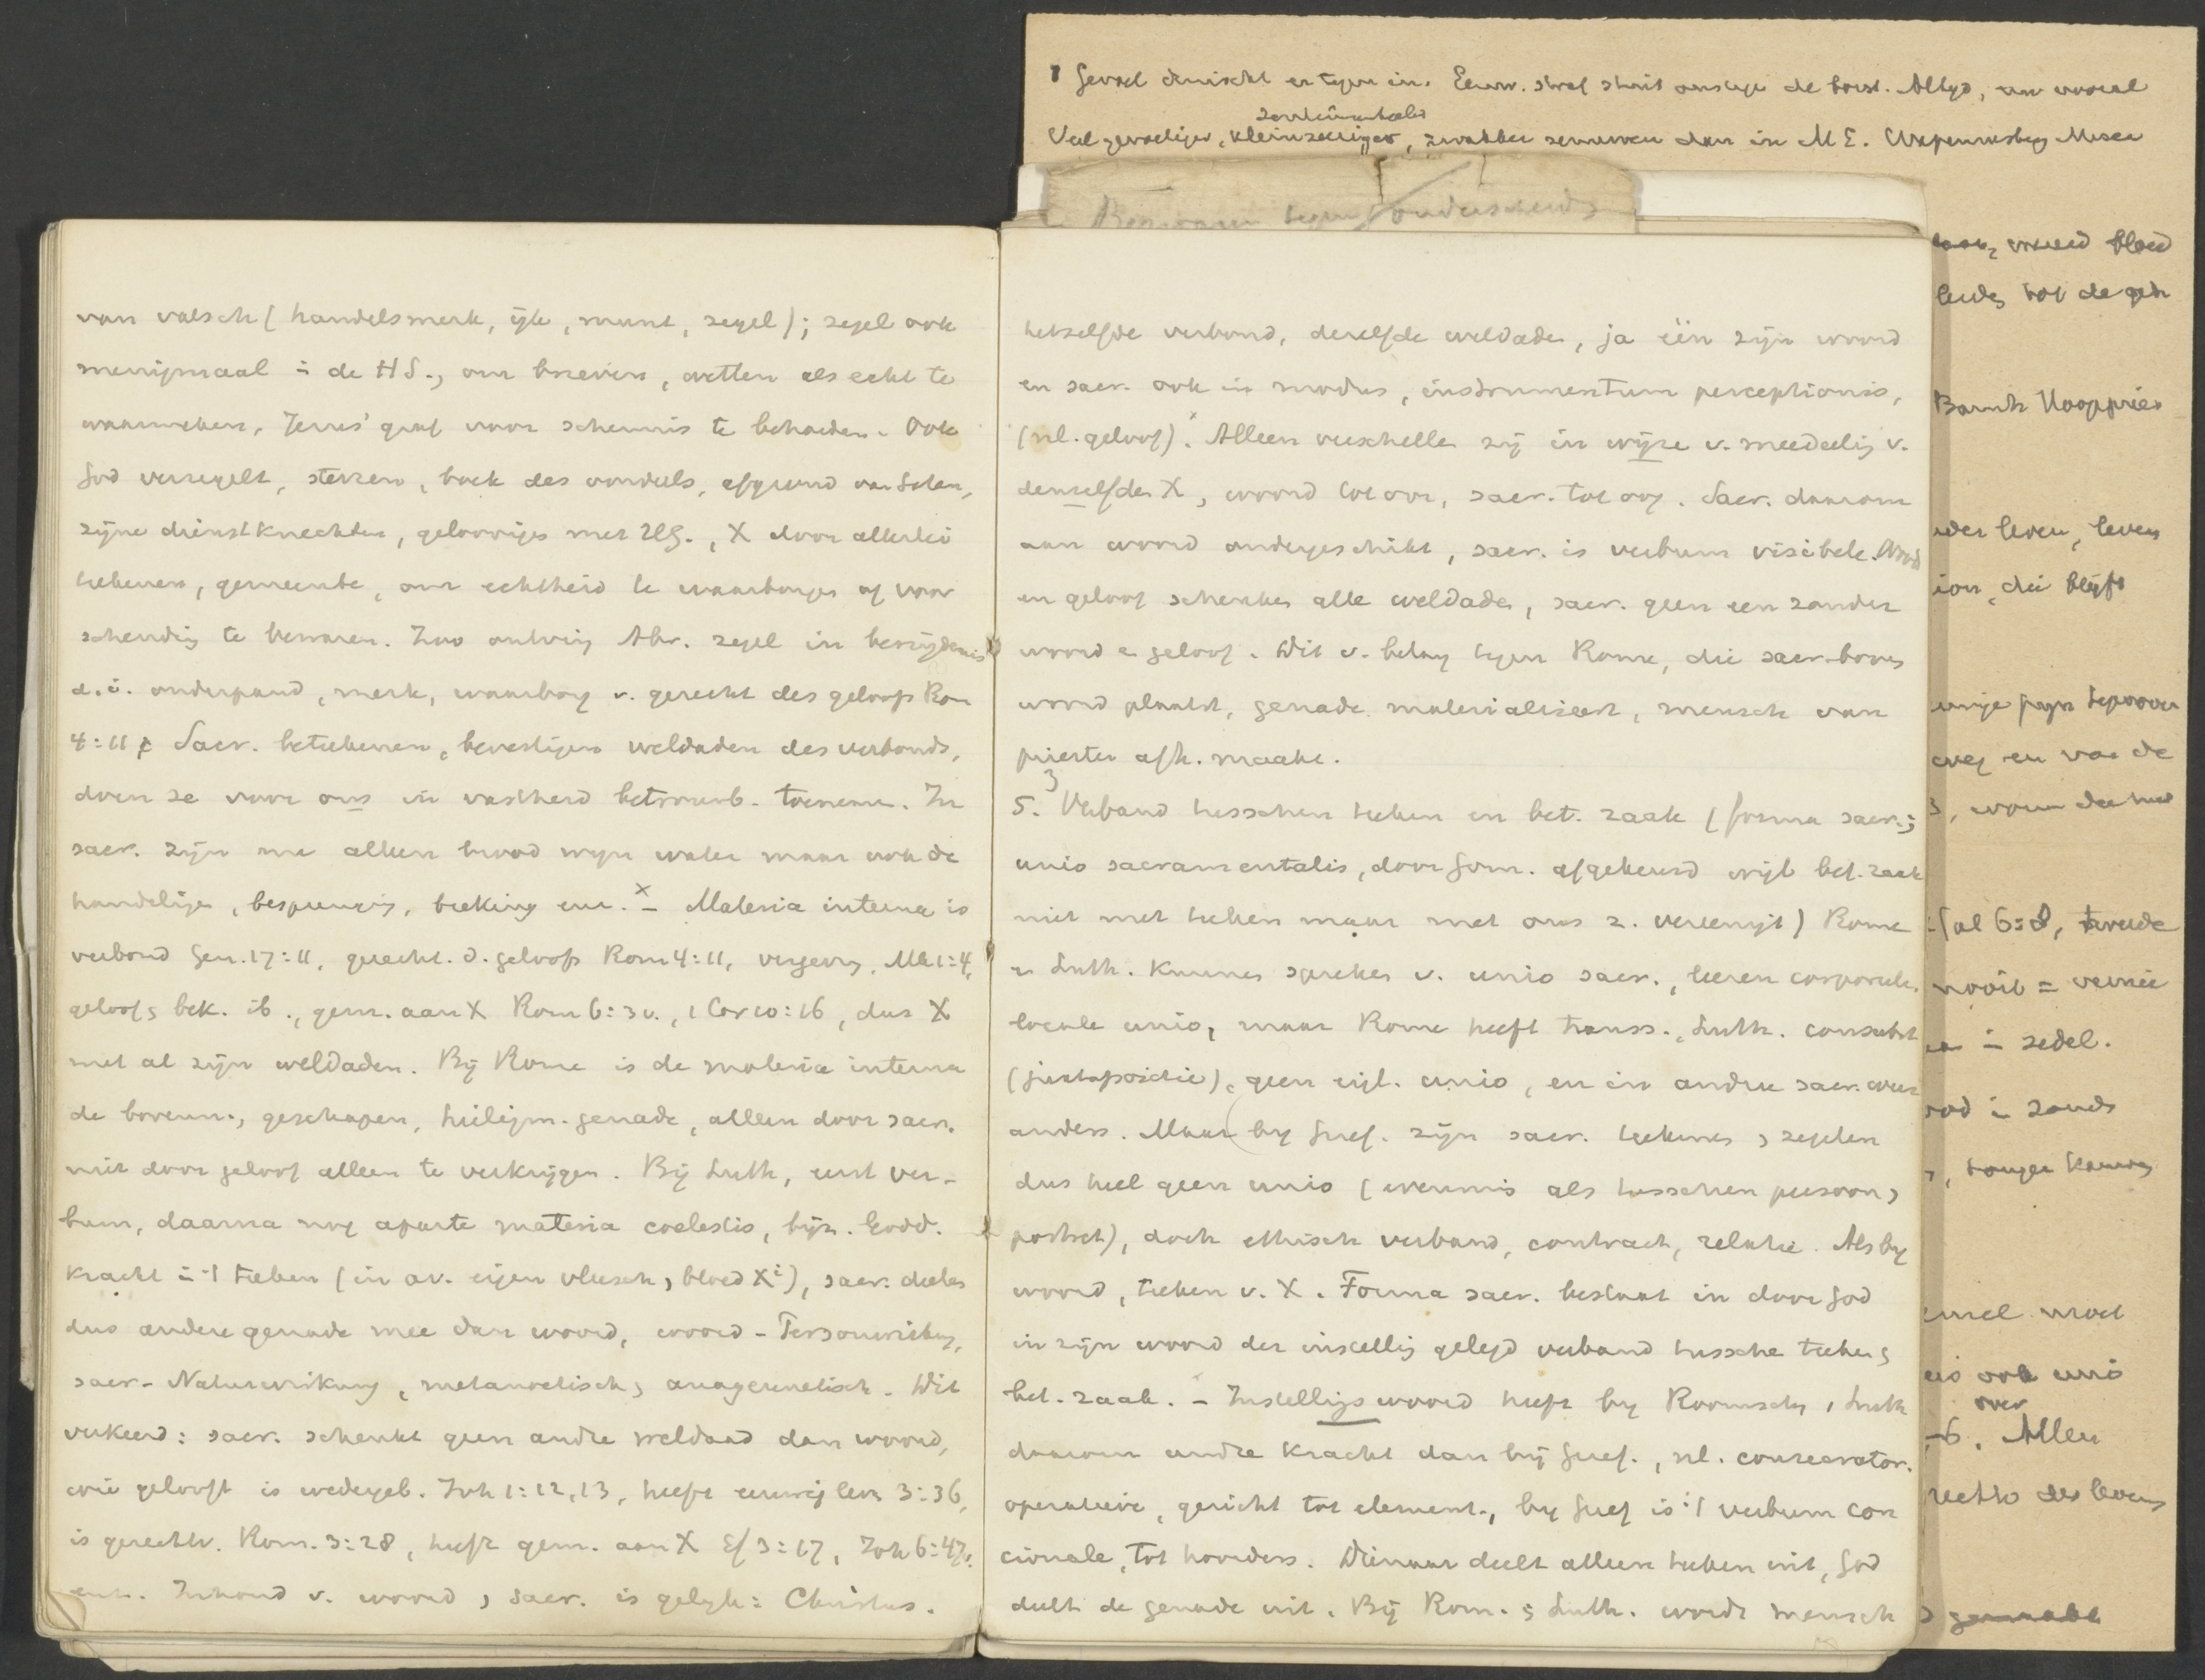 van valsch (handelsmerk, ijk, munt, zegel); zegel ook
menigmaal i de HS., om brieven, wetten als echt te
waarmerken, Jezus' graf voor schennis te behoeden. Ook
God verzegelt, sterren, boek des oordeels, afgrond van Satan,
zijne dienstknechten, geloovigen met HG., X door allerlei
teekenen, gemeente, om echtheid te waarborgen of voor
schending te bewaren. Zoo ontving Abr. zegel in besnijdenis
d.i. onderpand, merk, waarborg v. gerecht des geloofs Rom
4:11 Sacr. beteekenen, bevestigen weldaden des verbonds,
doen ze voor ons in vastheid betrouwb. toenemen. In
sacr. zijn nie alleen brood wijn water maar ook de
handelingen, besprenging, breking enz. x – Materia interna is
verbond Gen. 17:11, gerecht. d. geloofs Rom 4:11, vergeving, Mk 1:4,
geloof, bek. ib., gem. aan X Rom 6:3v., 1 Cor 10:16, dus X
met al zijn weldaden. Bij Rome is de materia interna
de bovenn., geschapen, heiligm. genade, alleen door sacr.
niet door geloof alleen te verkrijgen. Bij Luth, eerst ver-
bum, daarna nog aparte materia coelestis, bijz. Godd.
kracht i 't teeken (in av. eigen vleesch, bloed Xi), sacr. deelen
dus andere genade mee dan woord, woord - Personwirkung,
sacr - Naturwirkung, metanoetisch, anagennetisch. Dit
verkeerd: sacr. schenkt geen andre weldaad dan woord,
wie gelooft is wedergeb. Joh 1:12,13, heeft eeuwig leven 3:36,
is gerechtv. Rom. 3:28, heeft gem. aan X Ef 3:17, Joh 6:47v.
enz. Inhoud v. woord, sacr. is gelijk: Christus.
hetzelfde verbond, dezelfde weldaden, ja één zijn woord
en sacr. ook in modus, instrumentum perceptionis,
(nl. geloof). x Alleen verschillen zij in wijze v. meedeeling v.
denzelfden X, woord tot oor, sacr. tot oog. Sacr. daarom
aan woord ondergeschikt, sacr. is verbum visibele. Woord
en geloof schenken alle weldaden, sacr. geen een zonder
woord e geloof. Dit v. belang tegen Rome, die sacr. boven
woord plaatst, genade materialiseert, mensch van
priester afh. maakt.
5. 3 Verband tusschen teeken en bet. zaak (forma sacr.;
unio sacramentalis, door Gom. afgekeurd wijl bet. zaak
niet met teeken maar met ons z. vereenigt) Rome
e Luth. kunnen spreken v. unio sacr., leeren corporeele,
locale unio, maar Rome heeft transs., Luth. consubst
(juxtapositie), geen eigl. unio, en in andre sacr. weer
anders. Maar bij Geref. zijn sacr. teekenen, zegelen
dus heel geen unio (evenmin als tusschen persoon,
portret), doch ethisch verband, contract, relatie. Als bij
woord, teeken v. X. Forma sacr. bestaat in door God
in zijn woord der instelling gelegd verband tussche teeken,
bet. zaak. – Instellingswoord heeft bij Roomschen, Luth
daarom andre kracht dan bij Geref., nl. consecrator.
operatieve, gericht tot element., bij Geref is 't verbum con
cionale, tot hoorders. Dienaar deelt alleen teeken uit, God
deelt de genade uit. Bij Rom. , Luth. wordt mensch
Gevoel druischt er tegen in. Eeuw. straf stuit ons tegen de borst. Altijd, en vooral
sentimenteeler
Veel gevoeliger, kleinzeeriger, zwakker zenuwen dan in M E.
vreeed bloed
leven, leven
die blijft
en van de
tweede
nooit =
i zedel.
ook unio
over
Alleen
des levens